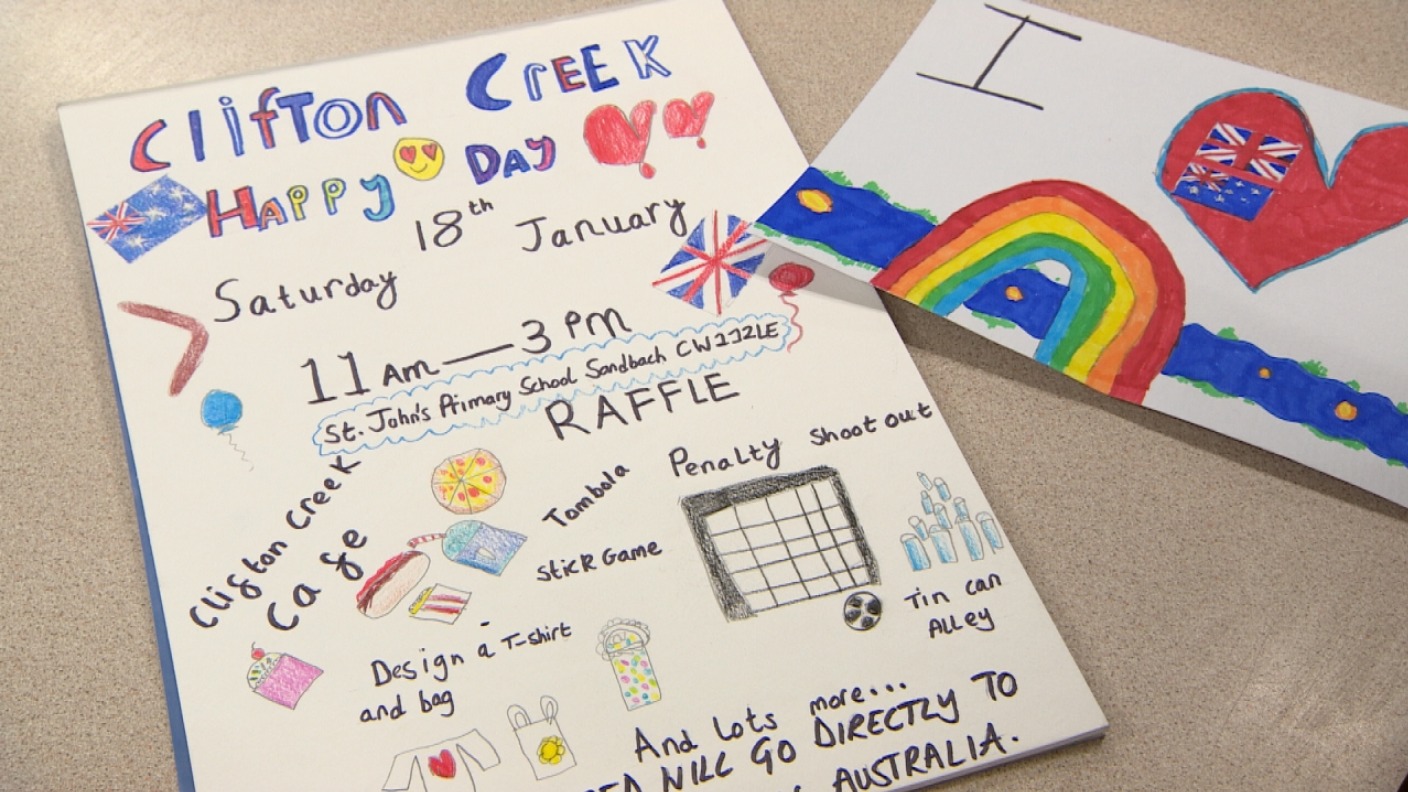 Clifton Creek
Happy Day
18th January
Saturday
11 Am — 3 PM
St. John's Primary School Sandbach CW112LE
RAFFLE
Clifton Creek
Cafe
Tombola
Stick Game
Penalty Shoot out
Tin can
Alley
Design a T-shirt
and bag
And Lots more...
WILL GO DIRECTLY TO
AUSTRALIA.
I